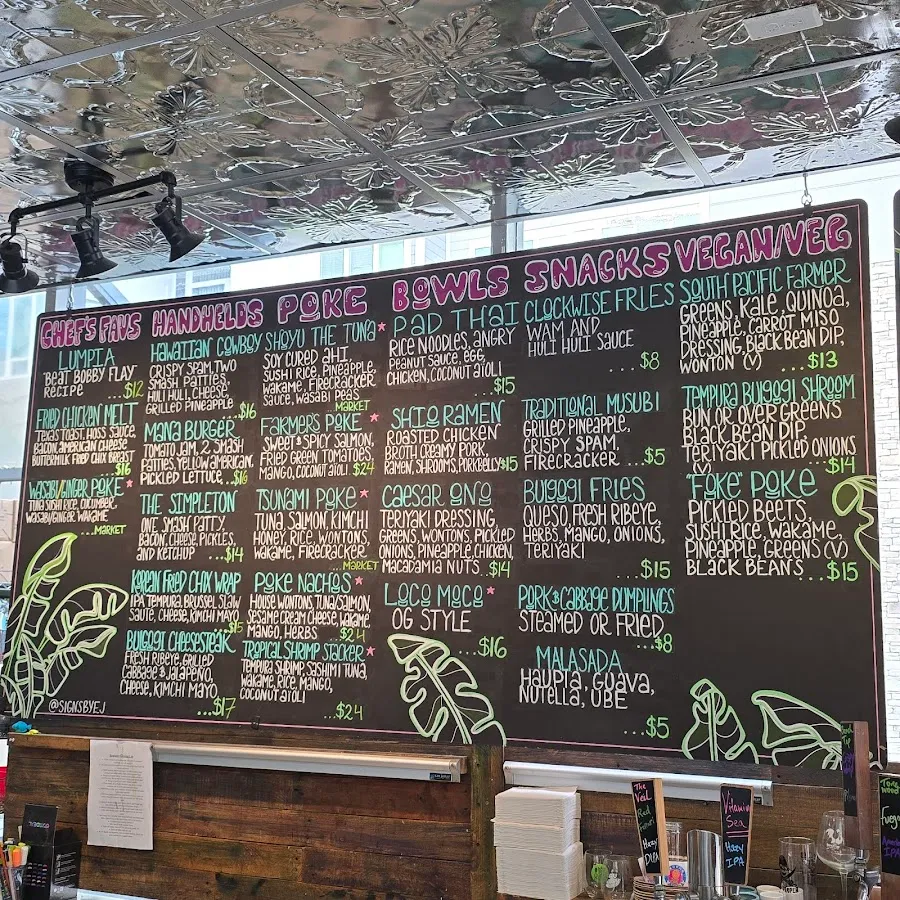 CHEF'S FAVS
LUMPIA
"BEAT BOBBY FLAY"
RECIPE ...$12
FRIED CHICKEN MELT
TEXAS TOAST, HOSS SAUCE,
BACON, AMERICAN CHEESE
BUTTERMILK FRIED CHIX BREAST
$16
WASABI/GINGER POKE *
TUNA SUSHI RICE, CUCUMBER,
WASABI/GINGER WAKAME
...MARKET
@SIGNSBYEJ
HANDHELDS
HAWAIIAN COWBOY
CRISPY SPAM, TWO
SMASH PATTIES,
HULI HULI, CHEESE,
GRILLED PINEAPPLE
...$16
MANA BURGER
TOMATO JAM, 2 SMASH
PATTIES, YELLOW AMERICAN,
PICKLED LETTUCE ...$16
THE SIMPLETON
ONE SMASH PATTY,
BACON, CHEESE, PICKLES,
AND KETCHUP ...$14
KOREAN FRIED CHIX WRAP
IPA TEMPURA, BRUSSEL SLAW
SAUTE, CHEESE, KIMCHI MAYO
$15
BULGOGI CHEESESTEAK
FRESH RIBEYE, GRILLED
CABBAGE & JALAPEÑO,
CHEESE, KIMCHI MAYO
...$17
POKE
SHOYU THE TUNA *
SOY CURED AHI,
SUSHI RICE, PINEAPPLE,
WAKAME, FIRECRACKER
SAUCE, WASABI PEAS
MARKET
FARMER'S POKE *
SWEET & SPICY SALMON,
FRIED GREEN TOMATOES
MANGO, COCONUT AIOLI $24
TSUNAMI POKE *
TUNA, SALMON, KIMCHI
HONEY, RICE, WONTONS,
WAKAME, FIRECRACKER
...MARKET
POKE NACHOS *
HOUSE WONTONS, TUNA/SALMON,
SESAME CREAM CHEESE, WAKAME
MANGO, HERBS ...$24
TROPICAL SHRIMP STACKER *
TEMPURA SHRIMP, SASHIMI TUNA,
WAKAME, RICE, MANGO,
COCONUT AIOLI
...$24
BOWLS
PAD THAI
RICE NOODLES, ANGRY
PEANUT SAUCE, EGG,
CHICKEN, COCONUT AIOLI
...$15
SHIO RAMEN
ROASTED CHICKEN
BROTH CREAMY PORK,
RAMEN, SHROOMS, PORKBELLY $15
CAESAR ONO
TERIYAKI DRESSING,
GREENS, WONTONS, PICKLED
ONIONS, PINEAPPLE, CHICKEN,
MACADAMIA NUTS ..$14
LOCO MOCO *
OG STYLE
...$16
SNACKS
CLOCKWISE FRIES
WAM AND
HULI HULI SAUCE
...$8
TRADITIONAL MUSUBI
GRILLED PINEAPPLE,
CRISPY SPAM,
FIRECRACKER ...$5
BULGOGI FRIES
QUESO, FRESH RIBEYE,
HERBS, MANGO, ONIONS,
TERIYAKI
...$15
PORK & CABBAGE DUMPLINGS
STEAMED OR FRIED
...$8
MALASADA
HAUPIA, GUAVA,
NUTELLA, UBE
...$5
VEGAN/VEG
SOUTH PACIFIC FARMER
GREENS, KALE, QUINOA,
PINEAPPLE, CARROT MISO
DRESSING, BLACK BEAN DIP,
WONTON (V) ...$13
TEMPURA BULGOGI SHROOM
BUN OR OVER GREENS
BLACK BEAN DIP,
TERIYAKI PICKLED ONIONS
(V) ...$14
"FOKE" POKE
PICKLED BEETS,
SUSHI RICE, WAKAME,
PINEAPPLE, GREENS (V)
BLACK BEANS ...$15
The
Veil
Hazy
DIPA
Vitamin
Sea
Hazy
IPA
Fuego
IPA